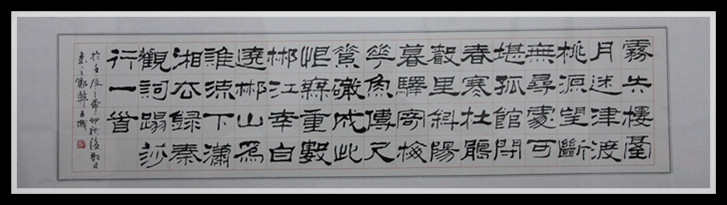 霧失樓臺
月迷津渡
桃源望斷
無尋處可
堪孤館閉
春寒杜鵑
聲里斜陽
暮驛寄梅
花魚傳尺
素砌成此
恨無重數
郴江幸自
遶郴山為
誰流下瀟
湘右錄秦
觀詞踢莎
行一首
於壬辰之年仲秋後數日